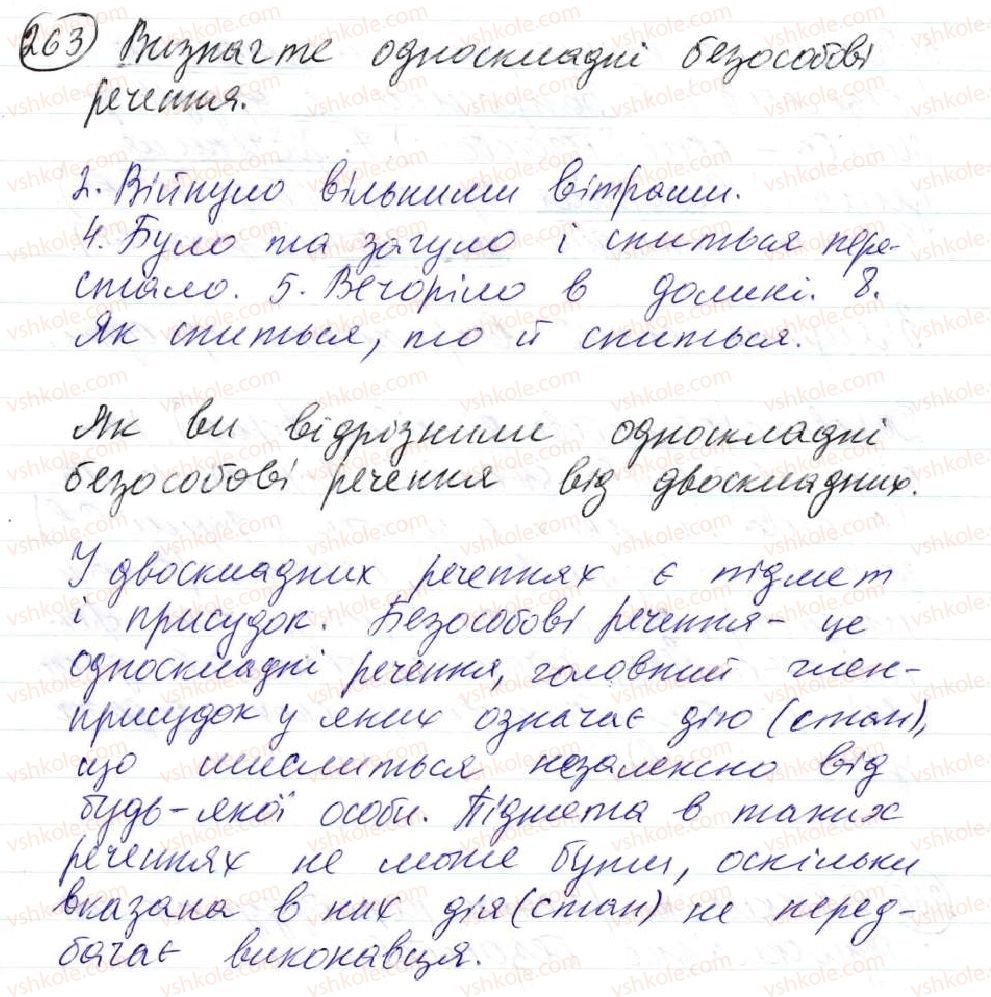 263 Визначте односкладні безособові
речення.
2. Війнуло вільними вітрами.
4. Було та загуло і сниться пере-
стало. 5. Вечоріло в долині. 8.
Як спиться, то й сниться.
Як ви відрізнили односкладні
безособові речення від двоскладних.
У двоскладних реченнях є підмет
і присудок. Безособові речення - це
односкладні речення, головний член-
присудок у яких означає дію (стан),
що мислиться незалежно від
будь-якої особи. Підмета в таких
реченнях не може бути, оскільки
вказана в них дія (стан) не перед-
бачає виконавця.